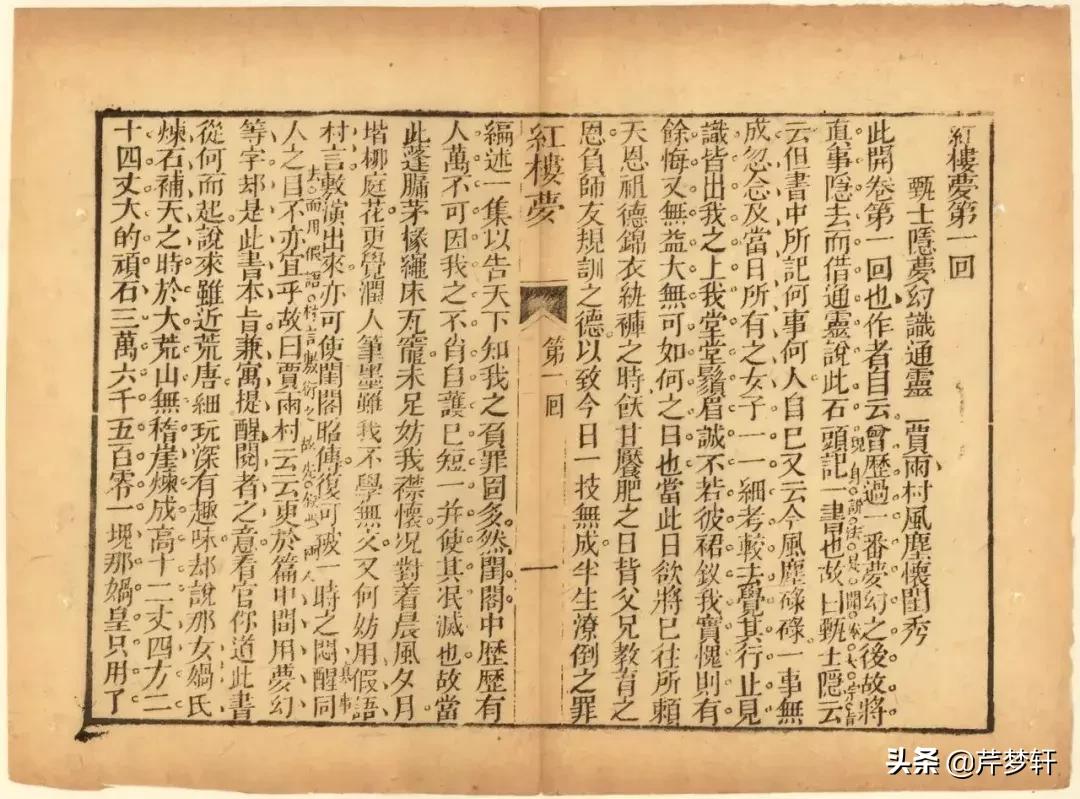 紅樓夢第一回
甄士隱夢幻識通靈　賈雨村風塵懷閨秀
此開卷第一回也作者自云曾歷過一番夢幻之後故將
現身說法是開
真事隱去而借通靈說此石頭記一書也故曰甄士隱云
云但書中所記何事何人自己又云今風塵碌碌一事無
成忽念及當日所有之女子一一細考較去覺其行止見
識皆出我之上我堂堂鬚眉誠不若彼裙釵我實愧則有
餘悔又無益大無可如何之日也當此日欲將已往所賴
天恩祖德錦衣紈褲之時飫甘饜肥之日背父兄教育之
恩負師友規訓之德以致今日一技無成半生潦倒之罪
紅樓夢　第一回　一
編述一集以告天下知我之負罪固多然閨閣中歷歷有
人萬不可因我之不肖自護己短一并使其泯滅也故當
此蓬牖茅椽繩床瓦竈未足妨我襟懷況對着晨風夕月
堦柳庭花更覺潤人筆墨雖我不學無文又何妨用假語
村言敷演出來亦可使閨閣昭傳復可破一時之悶醒同
真事
去而用假語村言敷衍之故先敘此兩人
人之目不亦宜乎故曰賈雨村云云更於篇中間用夢幻
等字却是此書本旨兼寓提醒閱者之意看官你道此書
從何而起說來雖近荒唐細玩深有趣味却說那女媧氏
煉石補天之時於大荒山無稽崖煉成高十二丈四方二
十四丈大的頑石三萬六千五百零一塊那媧皇只用了
头条 @芹梦轩